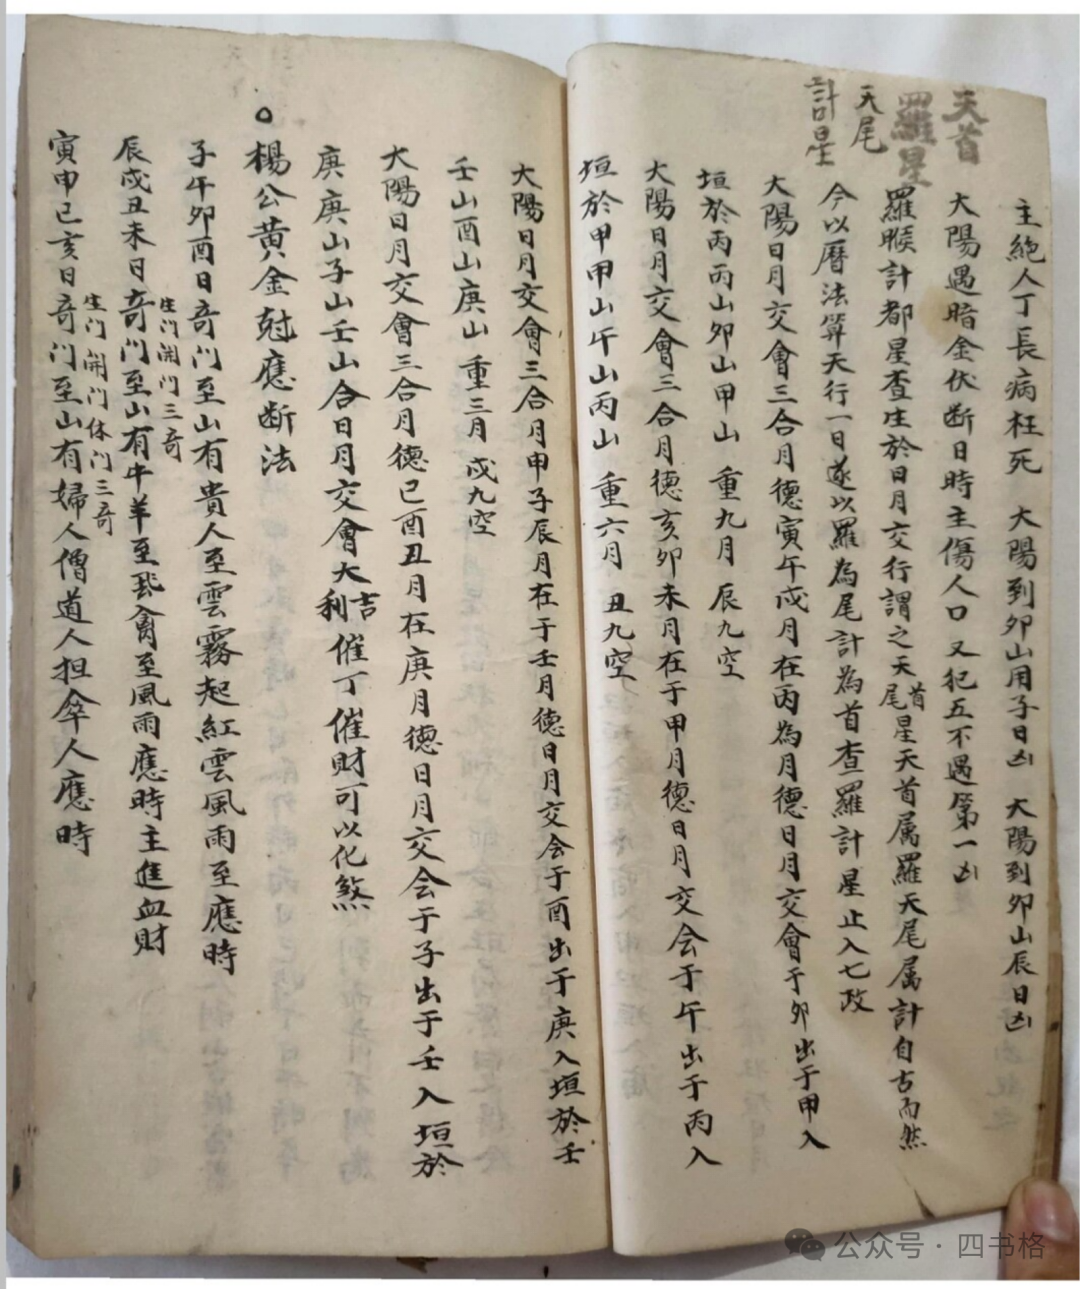 天首
羅星
天尾
計星
主絶人丁長病枉死 大陽到夘山用子日凶 大陽到夘山辰日凶
大陽遇暗金伏断日時主傷人口 又犯五不遇第一凶
羅睺計都星查生於日月交行謂之天首尾星天首属羅天尾属計自古而然
今以曆法算天行一日遂以羅為尾計為首查羅計星止入七政
大陽日月交會三合月德寅午戍月在丙為月德日月交會于夘出于甲入
垣於丙丙山夘山甲山 重九月 辰九空
大陽日月交會三合月德亥夘未月在于甲月德日月交会于午出于丙入
垣於甲甲山午山丙山 重六月 丑九空
大陽日月交會三合月申子辰月在于壬月德日月交会于酉出于庚入垣於壬
壬山酉山庚山 重三月 戍九空
大陽日月交會三合月德巳酉丑月在庚月德日月交会于子出于壬入垣於
庚庚山子山壬山合日月交會大吉利催丁催財可以化煞
○楊公黄金尅應断法
子午卯酉日奇门至山有貴人至雲霧起紅雲風雨至應時
生门開门三奇
辰戍丑未日奇门至山有牛羊至飛禽至風雨應時主進血财
生门開门休门三奇
寅申巳亥日奇门至山有婦人僧道人担傘人應時
公众号 · 四书格